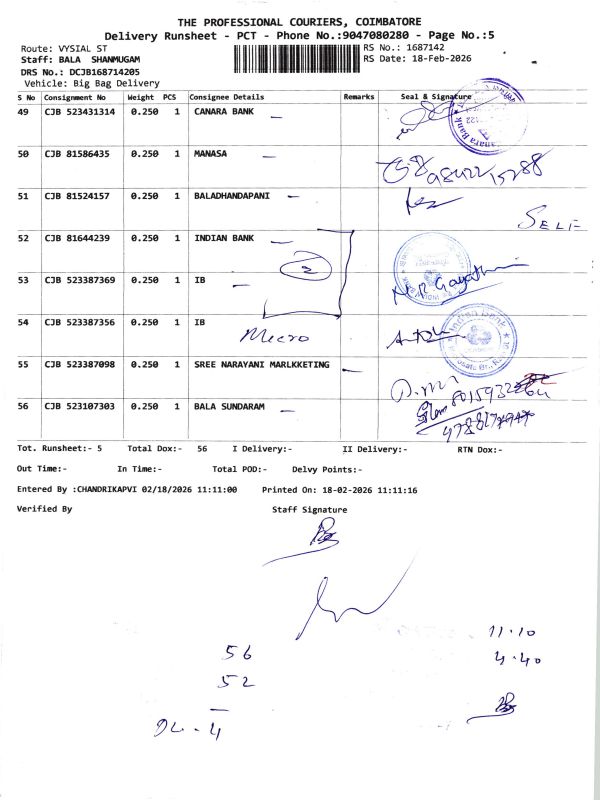 THE PROFESSIONAL COURIERS, COIMBATORE
Delivery Runsheet - PCT - Phone No.:9047080280 - Page No.:5
Route: VYSIAL ST
RS No.: 1687142
Staff: BALA SHANMUGAM
RS Date: 18-Feb-2026
DRS No.: DCJB168714205
Vehicle: Big Bag Delivery
S No Consignment No Weight PCS Consignee Details Remarks Seal & Signature
49 CJB 523431314 0.250 1 CANARA BANK
50 CJB 81586435 0.250 1 MANASA
51 CJB 81524157 0.250 1 BALADHANDAPANI
SELF
52 CJB 81644239 0.250 1 INDIAN BANK
2
53 CJB 523387369 0.250 1 IB
54 CJB 523387356 0.250 1 IB
Micro
Indian Bank
55 CJB 523387098 0.250 1 SREE NARAYANI MARLKKETING
56 CJB 523107303 0.250 1 BALA SUNDARAM
Tot. Runsheet:- 5 Total Dox:- 56 I Delivery:- II Delivery:- RTN Dox:-
Out Time:- In Time:- Total POD:- Delvy Points:-
Entered By :CHANDRIKAPVI 02/18/2026 11:11:00 Printed On: 18-02-2026 11:11:16
Verified By Staff Signature
11.10
56 4.40
52